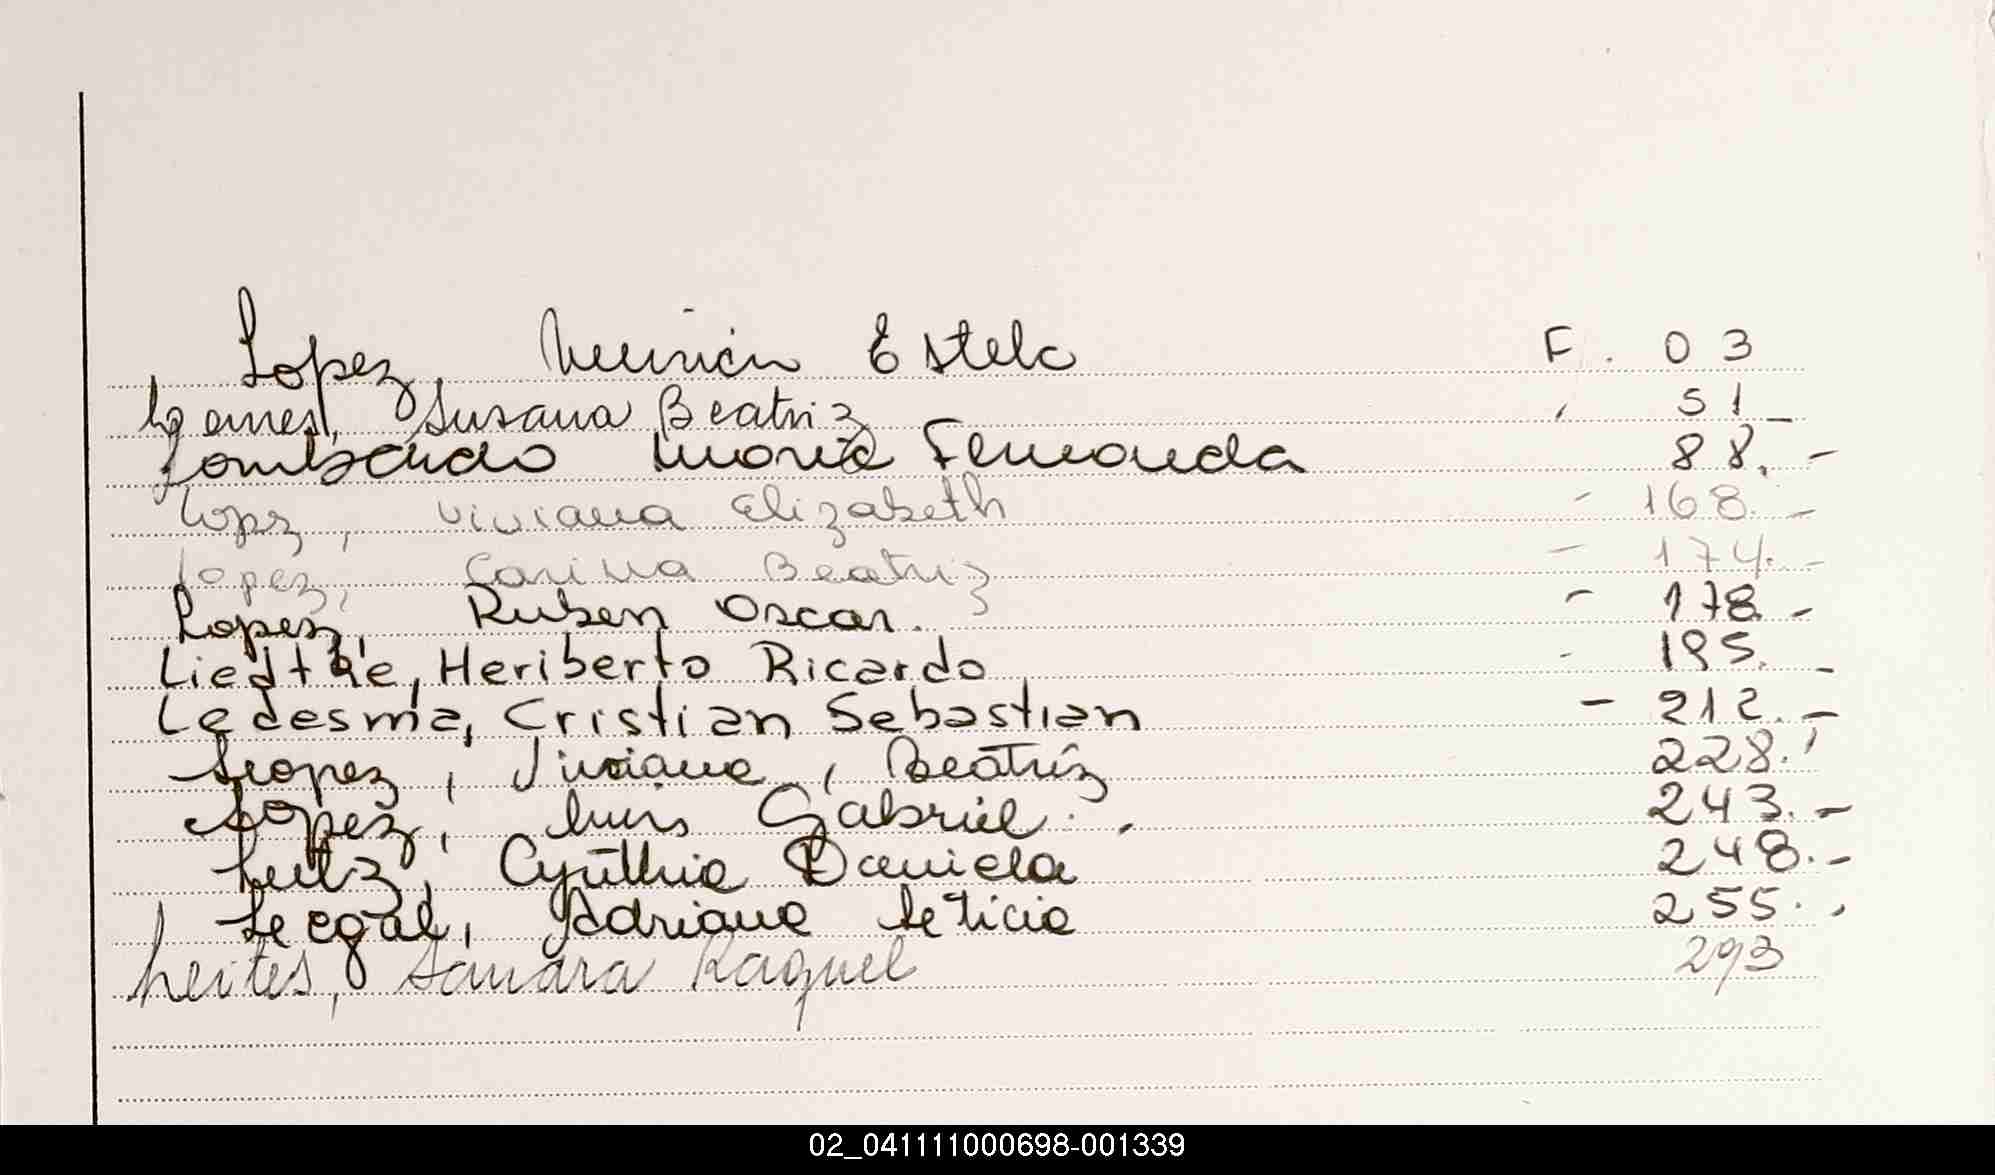 Lopez, Miriam Estela F. 03
Susana Beatriz , 51 -
Lombardo Maria Fernanda 88. -
Lopez, Viviana Elizabeth - 168. -
Lopez, Carina Beatriz - 174. -
Lopez, Ruben Oscar. - 178. -
Liedtke, Heriberto Ricardo - 195. -
Ledesma, Cristian Sebastian - 212. -
Lopez, Viviana, Beatriz 228.
Lopez, Luis Gabriel. 243. -
Lutz, Cynthia Daniela 248. -
Legal, Adriana Leticia 255.
Leites, Sandra Raquel 293
02_041111000698-001339